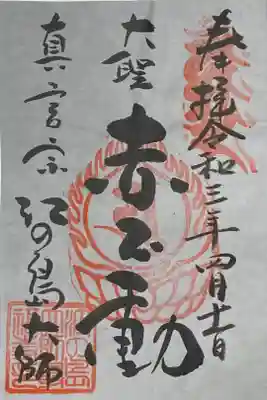 奉拝令和三年四月十一日
大聖
赤不動
真言宗 江の島大師